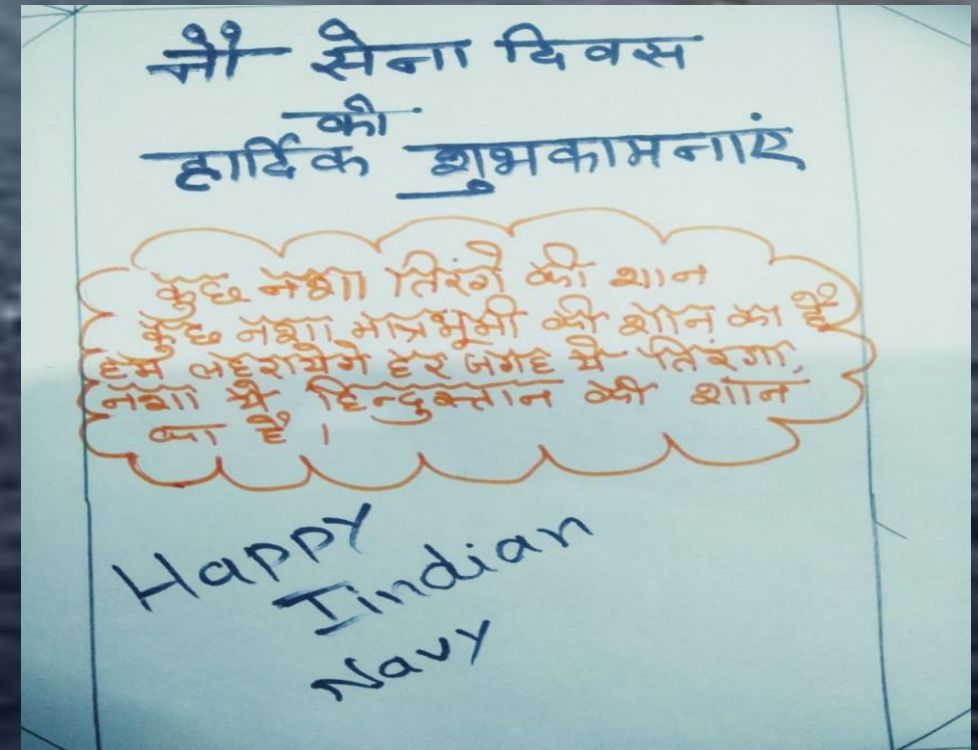 नौ सेना दिवस
की
हार्दिक शुभकामनाएं
कुछ नशा तिरंगे की शान
कुछ नशा मात्रभूमी की शान का है
हम लहरायेगे हर जगह ये तिरंगा,
नशा ये हिन्दुस्तान की शान
का है।
Happy
Iindian
Navy